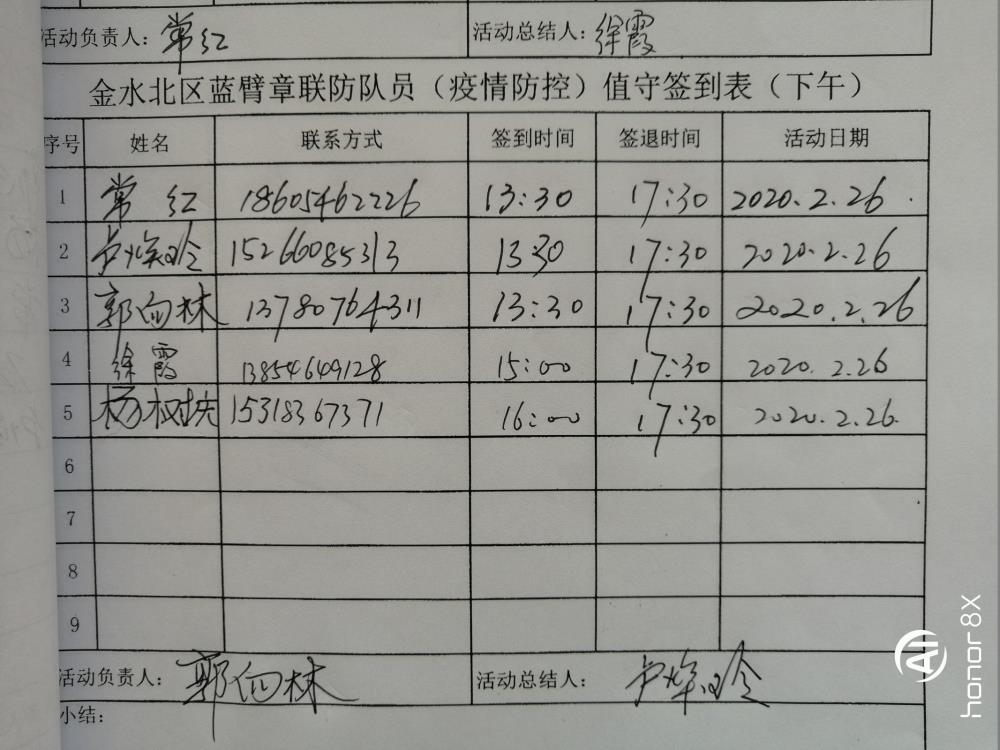 活动负责人：常红 活动总结人：徐霞
金水北区蓝臂章联防队员（疫情防控）值守签到表（下午）
序号 姓名 联系方式 签到时间 签退时间 活动日期
1 常红 18605462226 13:30 17:30 2020.2.26
2 15266085313 13:30 17:30 2020.2.26
3 郭向林 13780764311 13:30 17:30 2020.2.26
4 徐霞 13854649128 15:00 17:30 2020.2.26
5 杨 15318367371 16:00 17:30 2020.2.26
6
7
8
9
活动负责人：郭向林 活动总结人：
小结：
honor 8X
AI